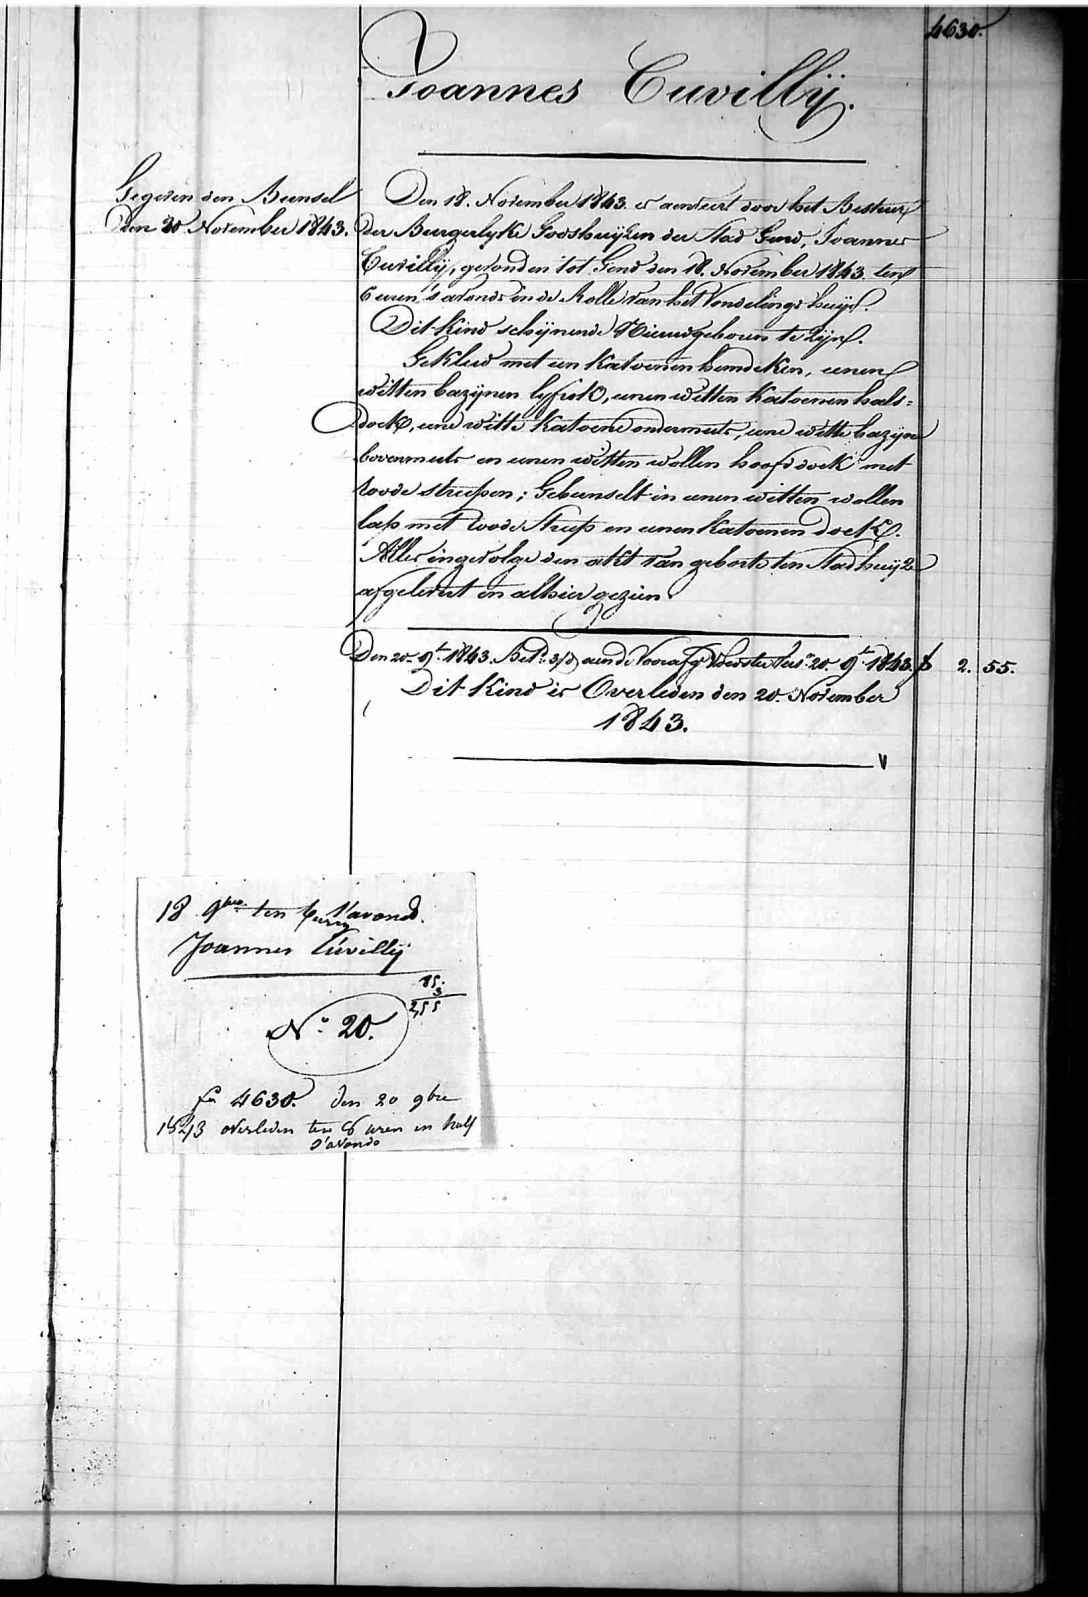 4630.
Joannes Cuvillÿ.
Gegeven den Bunsel
den 20 November 1843.
Den 18. November 1843 is aenveert door het Bestuur
der Burgerlyke Godshuÿzen der Stad Gend, Joannes
Cuvillÿ, gevonden tot Gend den 18. November 1843 ten
6 uren 's avonds in de Rolle van het Vondelings huÿs.
Dit kind schÿnende Nieuwgeboren te zÿn.
Gekleed met een katoenen hemdeken, eenen
witten bazÿnen lyfrok, eenen witten katoenen hals=
doek, eene witte katoene ondermuts, eene witte bazÿne
bovenmuts en eenen witten wollen hoofddoek met
roode streepen; Gebunselt in eenen witten wollen
lap met roode streep en eenen katoenen doek.
Alles ingevolge den akt van geboorte ten Stadhuÿze
afgelevert en alhier gezien.
Den 20. 9.t 1843. Bet. 3/d aende Voorafg Voedster 20. 9.t 1843. f 2. 55.
Dit kind is Overleden den 20. November
1843.
18 9bre ten 6 uren s'avonds.
Joannes Cúvillÿ
85.
3
2,55
N.o 20.
fo 4630. den 20 9bre
1843 overleden ten 6 uren en half
s'avonds